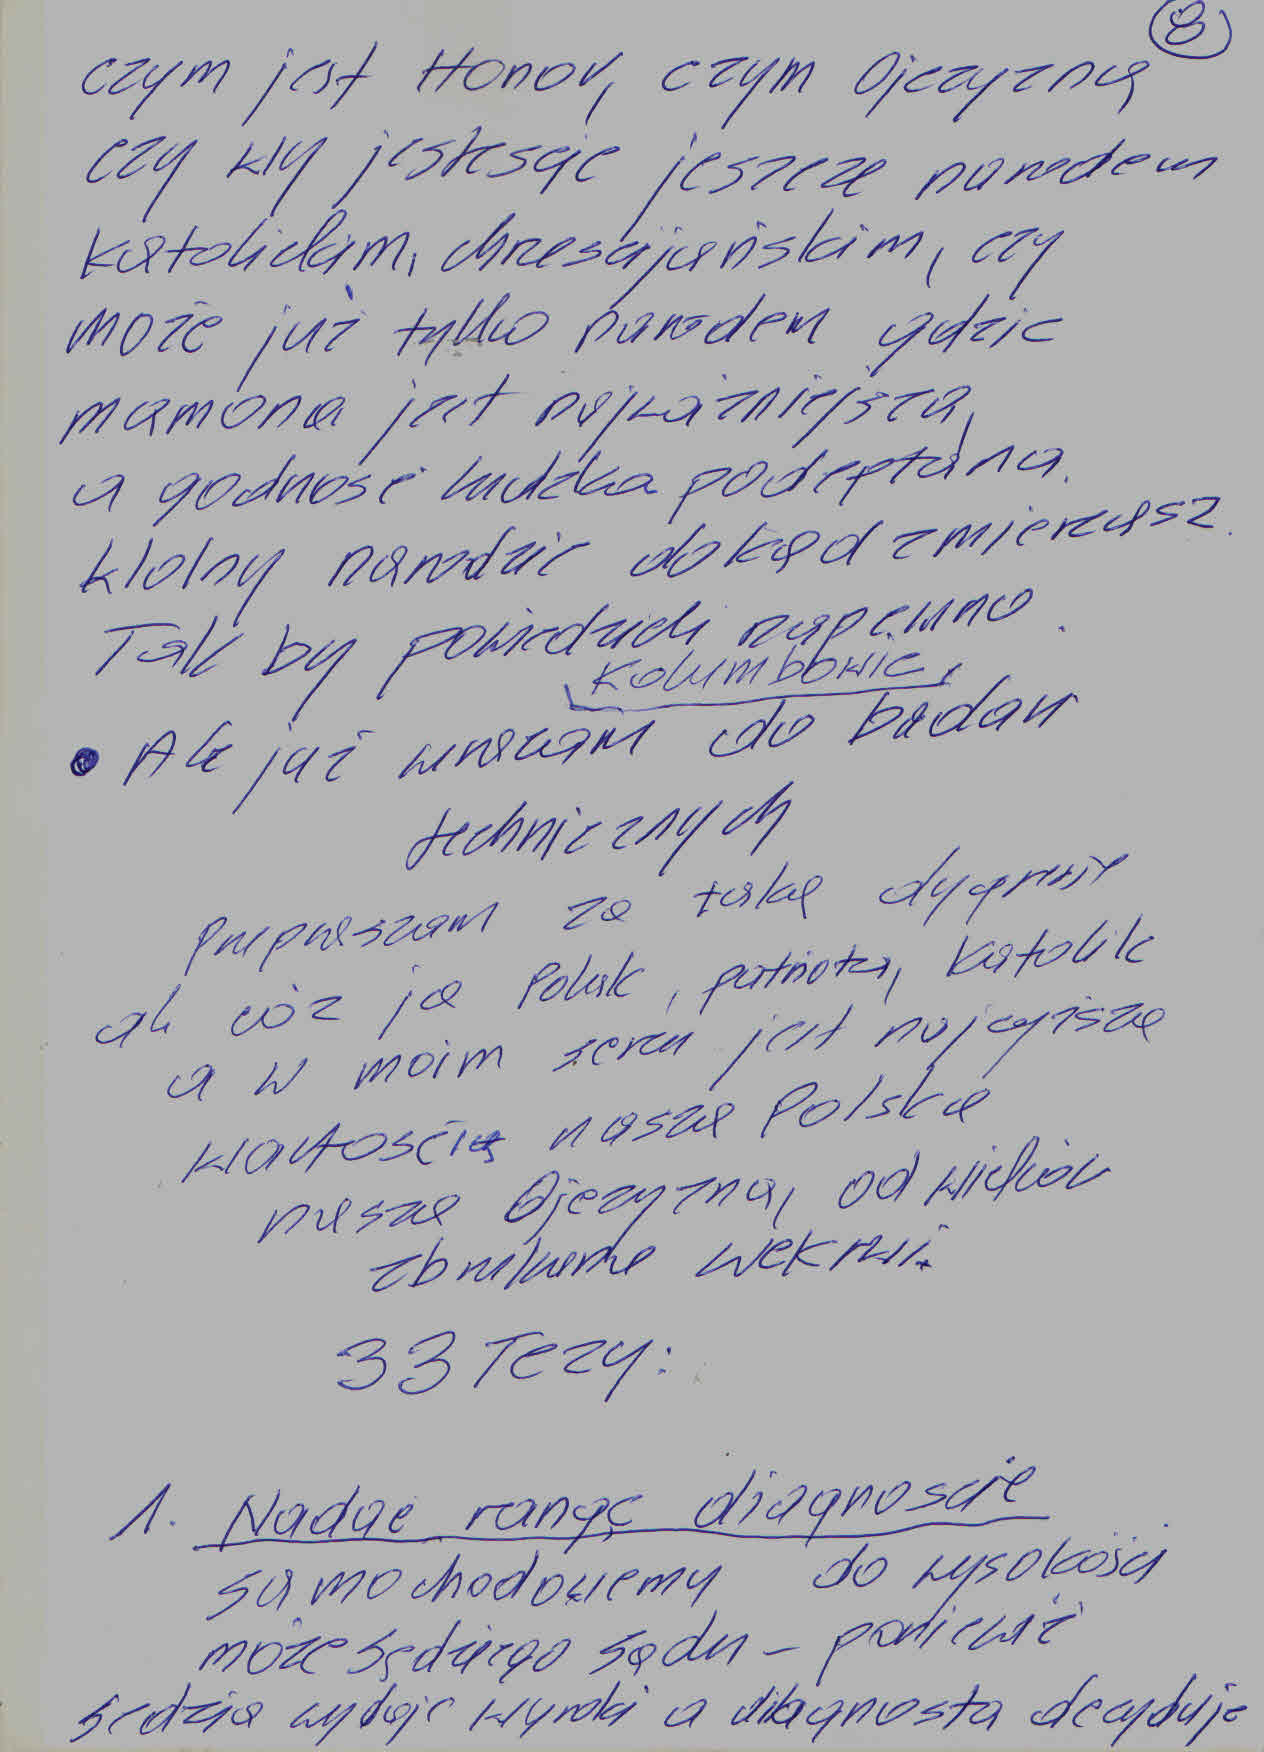 8
czym jest Honor, czym Ojczyzną
czy wy jesteście jeszcze narodem
katolickim, chrześcijańskim, czy
może już tylko narodem gdzie
mamona jest najważniejsza,
a godność ludzka podeptana.
Wolny narodzie dokąd zmierzasz.
Tak by powiedzieli zapewno.
Kolumbowie.
• Ale już wracam do badań
technicznych
Przepraszam za taką dygresję
ale cóż ja Polak, patriota, Katolik
a w moim sercu jest najwyższą
wartością nasza Polska
nasza Ojczyzna, od wieków
zbrukana we krwi.
33 Tezy:
1. Nadać rangę diagnoście
samochodowemu do wysokości
może sędziego sądu – ponieważ
sędzia wydaje wyroki a diagnosta decyduje